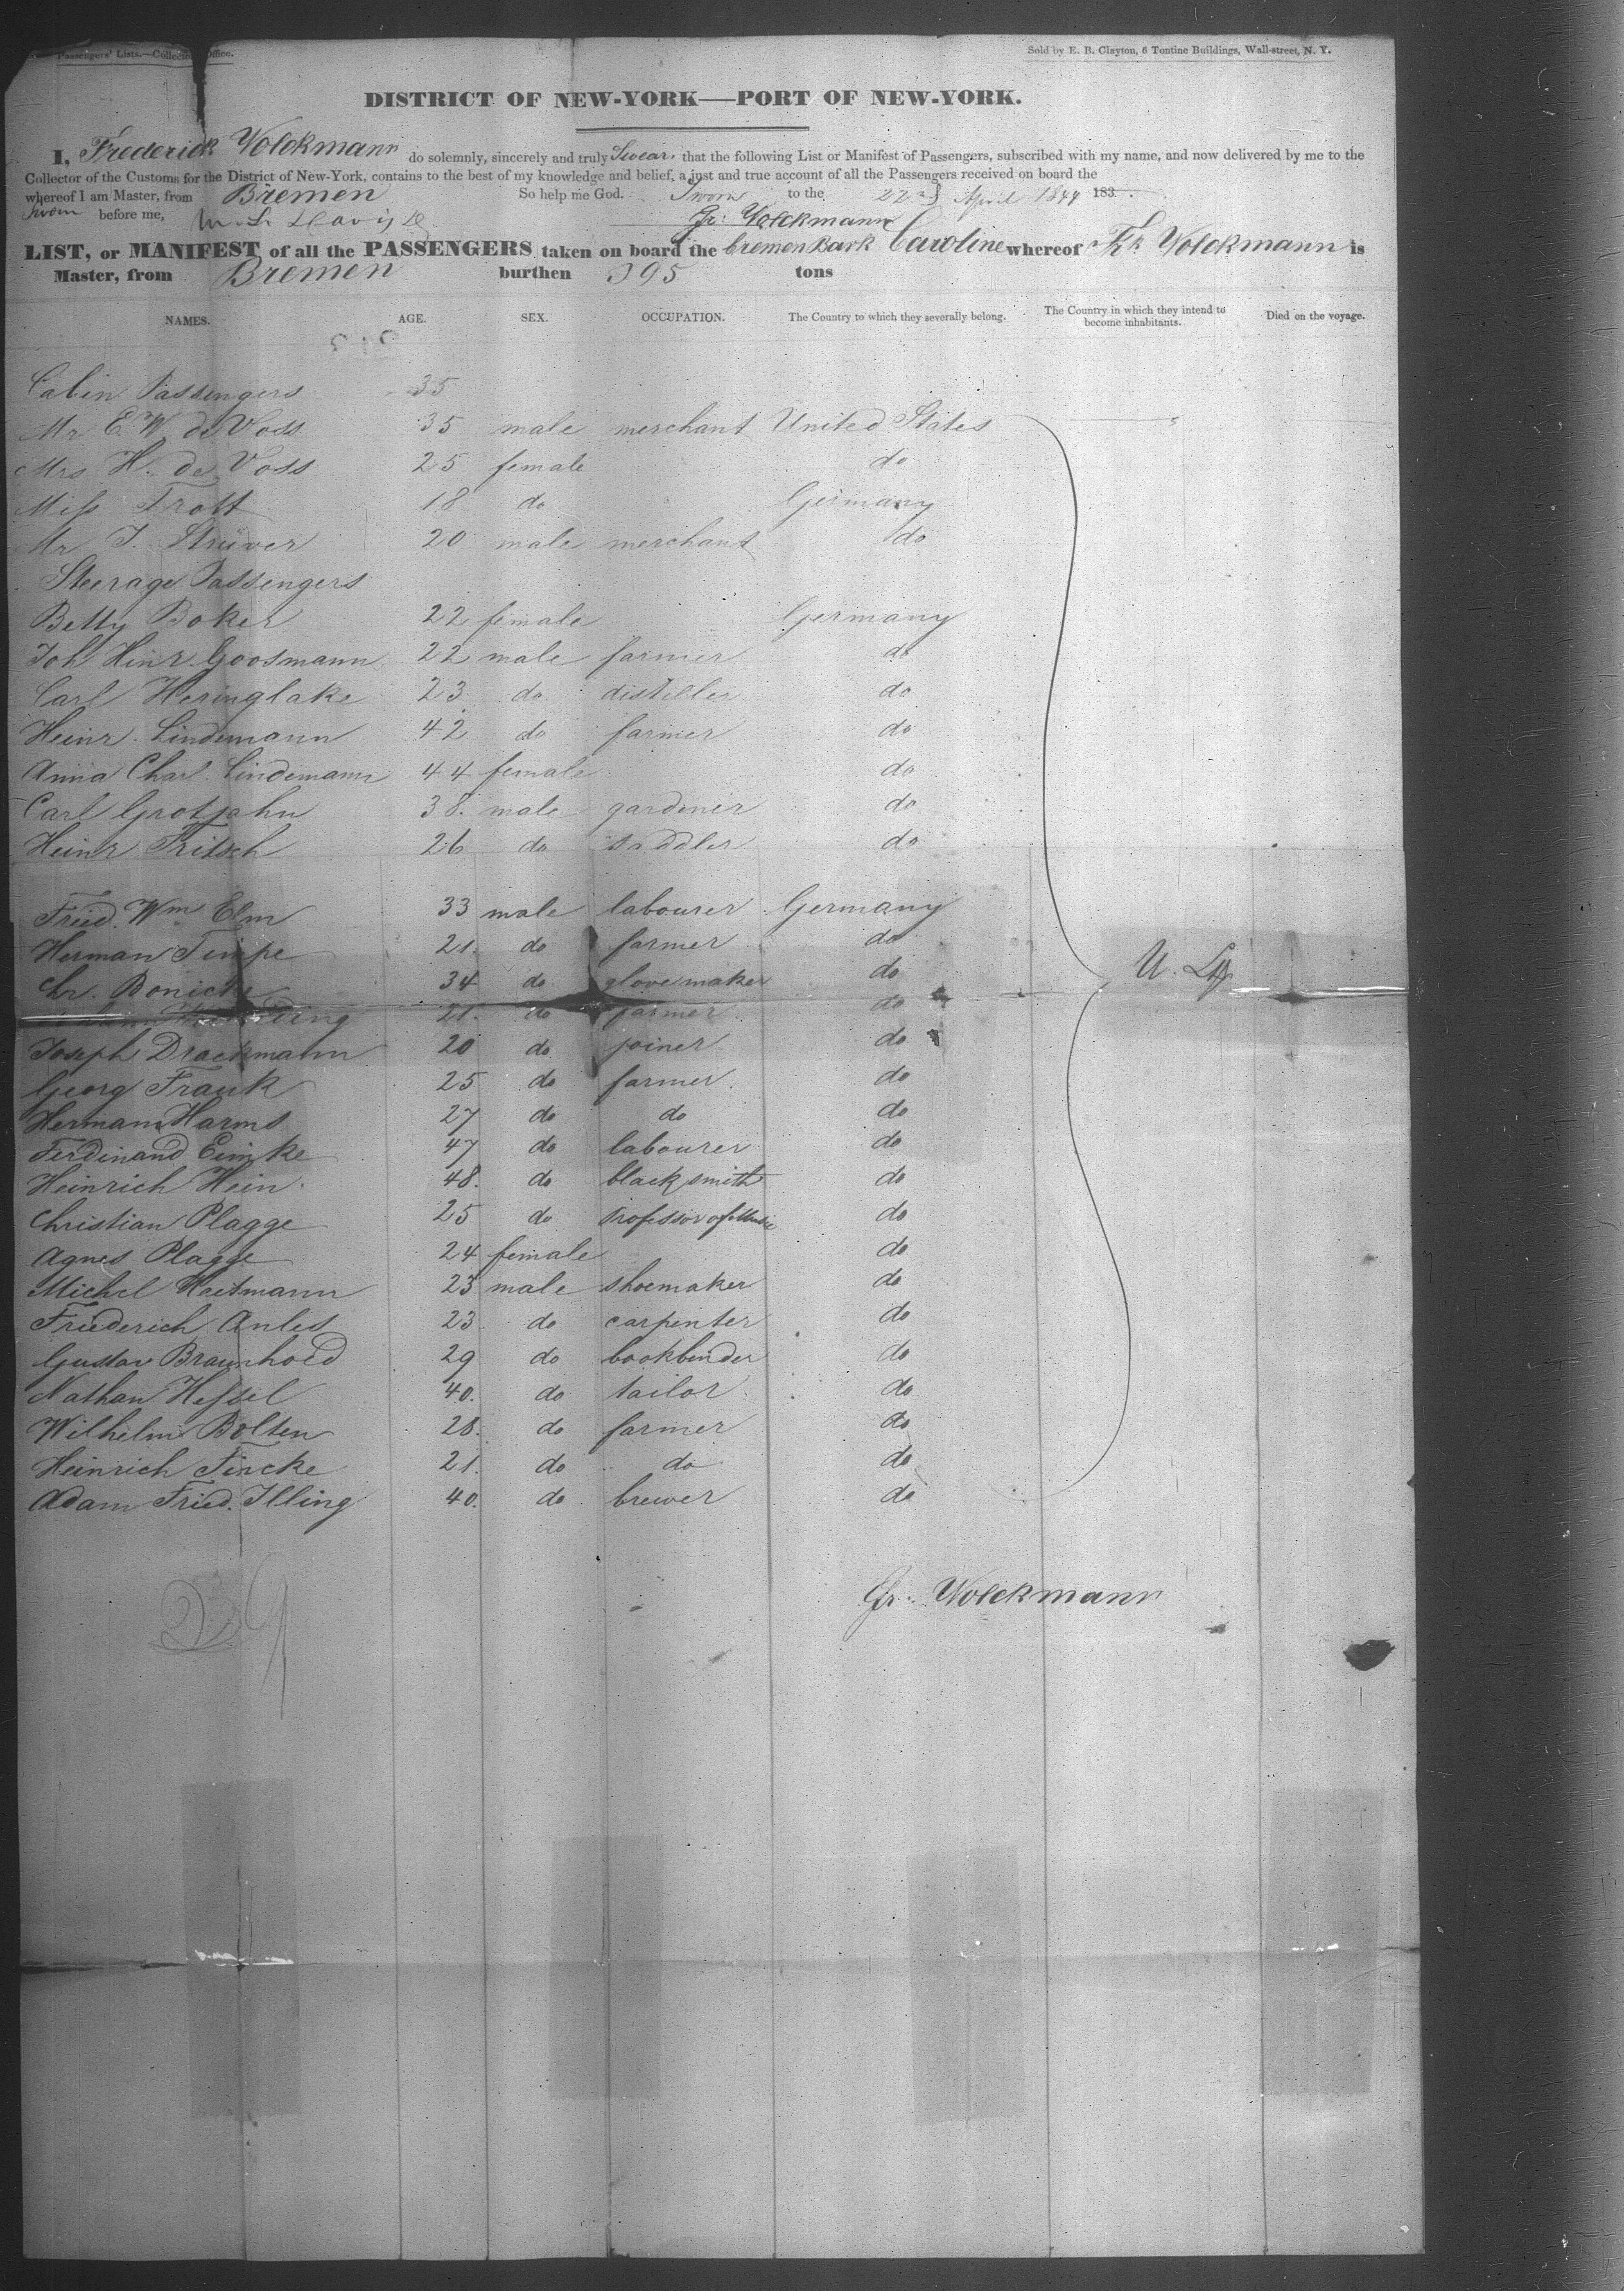 Passengers' Lists.—Collector's Office.
Sold by E. B. Clayton, 6 Tontine Buildings, Wall-street, N. Y.
DISTRICT OF NEW-YORK—PORT OF NEW-YORK.
I, Frederick Volckmann do solemnly, sincerely and truly Swear, that the following List or Manifest of Passengers, subscribed with my name, and now delivered by me to the
Collector of the Customs for the District of New-York, contains to the best of my knowledge and belief, a just and true account of all the Passengers received on board the
whereof I am Master, from Bremen So help me God. Sworn to the 22nd April 1844 183
Sworn before me, Fr: Volckmann
LIST, or MANIFEST of all the PASSENGERS taken on board the bremen Bark Caroline whereof Fr. Volckmann is
Master, from Bremen burthen 395 tons
NAMES. AGE. SEX. OCCUPATION. The Country to which they severally belong. The Country in which they intend to become inhabitants. Died on the voyage.
Cabin Passengers 35
Mr E. W. de Voss 35 male merchant United States
Mrs H. de Voss 25 female do
Miss Trott 18 do Germany
Mr J. Strüver 20 male merchant do
Steerage Passengers
Betty Boker 22 female Germany
Joh Hinr. Goosmann 22 male farmer do
Carl Heringlake 23 do distiller do
Heinr. Lindemann 42 do farmer do
Anna Charl. Lindemann 44 female do
Carl Grotjahn 38. male gardiner do
Heinr Fritsch 26 do saddler do
Fried. Wm Elm 33 male labourer Germany
Herman Timpe 21. do farmer do
Chr. Bonicke 34 do glovemaker do
21. do farmer do
Joseph Drackmann 20 do joiner do
Georg Frank 25 do farmer. do
Hermann Harms 27 do do do
Ferdinand Eimke 47 do labourer do
Heinrich Hein. 48. do blacksmith do
Christian Plagge 25 do Professor of Music do
Agnes Plagge 24 female do
Michel 23 male shoemaker do
Friederich Anles 23 do carpenter do
Gustav Braunhold 29 do bookbinder do
Nathan Hessel 40. do tailor do
Wilhelm Bolten 28. do farmer do
Heinrich Fincke 21. do do do
Adam Fried. Illing 40. do brewer do
U. St.
29
Fr: Volckmann